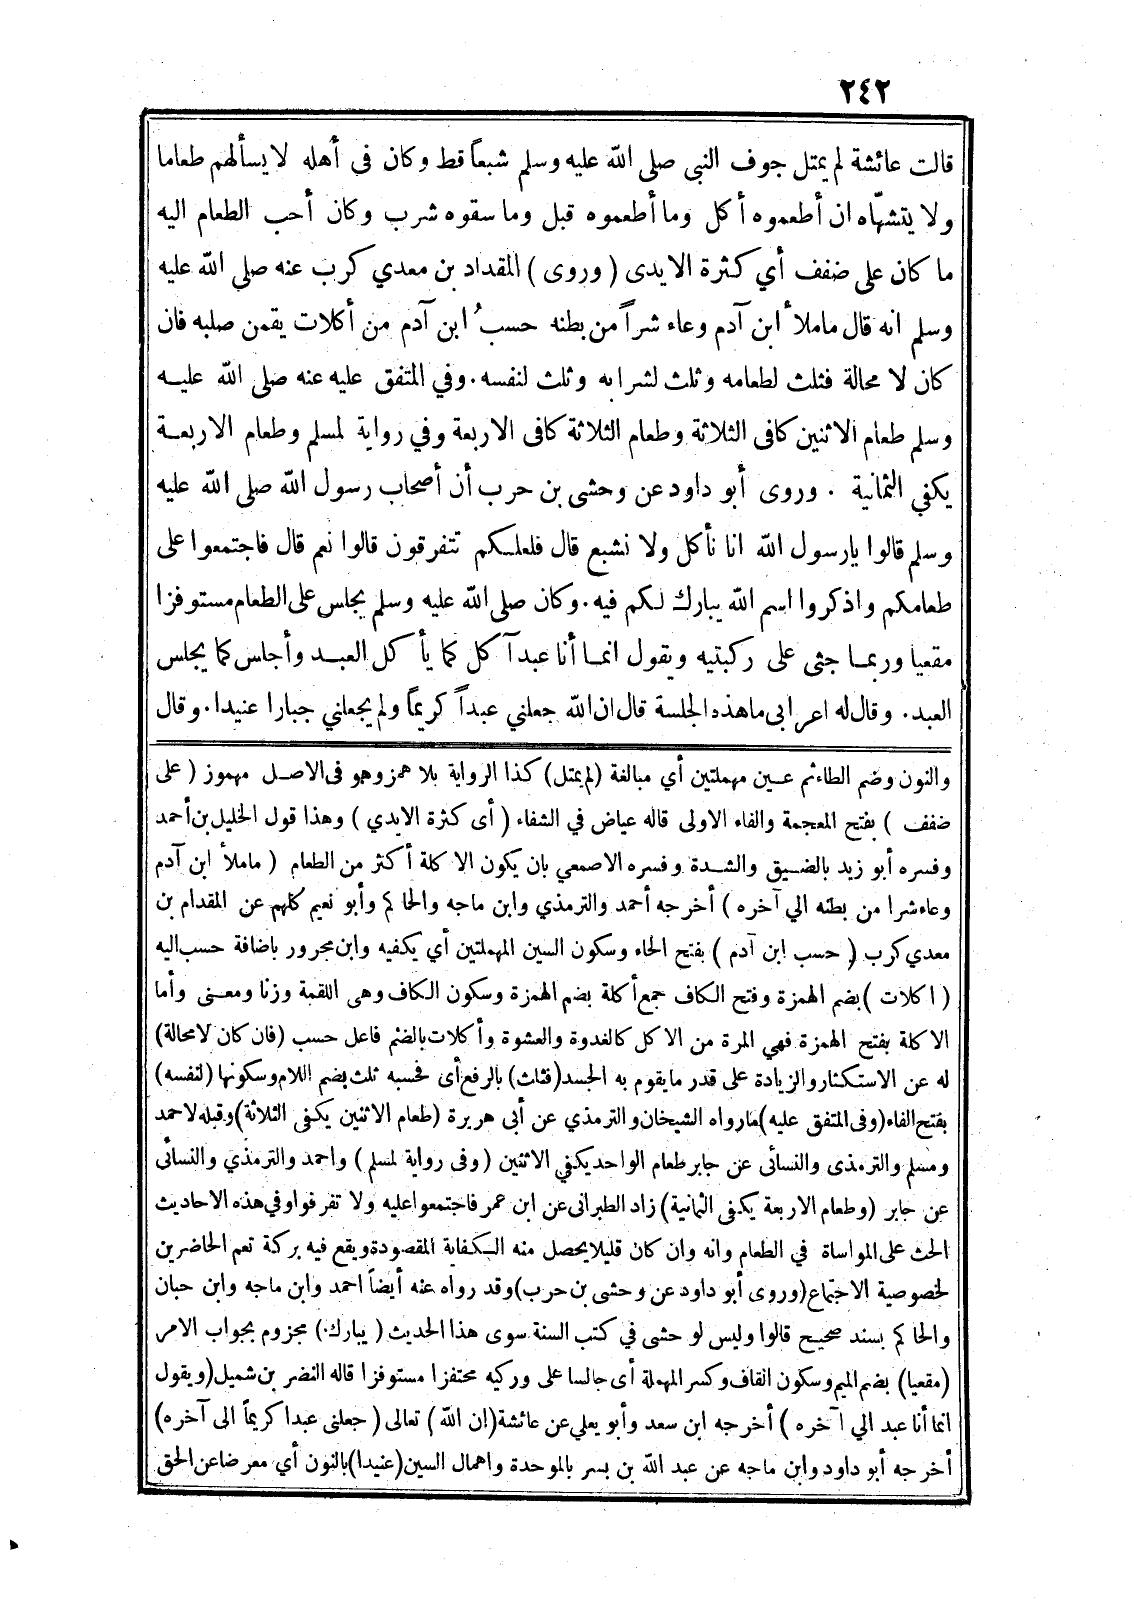 ٢٤٢
قالت عائشة لم يمتل جوف النبي صلى الله عليه وسلم شبعاً قط وكان في أهله لا يسألهم طعاما
ولا يتشهّاه ان أطعموه أكل وما أطعموه قبل وما سقوه شرب وكان أحب الطعام اليه
ما كان على ضفف أي كثرة الايدى ( وروى ) المقداد بن معدي كرب عنه صلى الله عليه
وسلم انه قال ما ملأ ابن آدم وعاء شراً من بطنه حسبُ ابن آدم من أكلات يقمن صلبه فان
كان لا محالة فثلث لطعامه وثلث لشرابه وثلث لنفسه . وفي المتفق عليه عنه صلى الله عليه
وسلم طعام الاثنين كافى الثلاثة وطعام الثلاثة كافى الاربعة وفي رواية لمسلم وطعام الاربعة
يكفي الثمانية . وروى أبو داود عن وحشى بن حرب أن أصحاب رسول الله صلى الله عليه
وسلم قالوا يارسول الله انا نأكل ولا نشبع قال فلعلكم تتفرقون قالوا نعم قال فاجتمعوا على
طعامكم واذكروا اسم الله يبارك لكم فيه . وكان صلى الله عليه وسلم يجلس على الطعام مستوفزا
مقعيا وربما جثى على ركبتيه ويقول انما أنا عبد آكل كما يأكل العبد وأجلس كما يجلس
العبد . وقال له اعرابى ما هذه الجلسة قال ان الله جعلني عبداً كريماً ولم يجعلني جبارا عنيدا . وقال
والنون وضم الطاء ثم عين مهملتين أي مبالغة (لم يمتل) كذا الرواية بلا همز وهو فى الاصل مهموز ( على
ضفف ) بفتح المعجمة والفاء الاولى قاله عياض في الشفاء ( أى كثرة الايدي ) وهذا قول الخليل بن أحمد
وفسره أبو زيد بالضيق والشدة وفسره الاصمعي بان يكون الاكلة أكثر من الطعام ( ما ملأ ابن آدم
وعاء شرا من بطنه الي آخره ) أخرجه أحمد والترمذي وابن ماجه والحاكم وأبو نعيم كلهم عن المقدام بن
معدي كرب ( حسب ابن آدم ) بفتح الحاء وسكون السين المهملتين أي يكفيه وابن مجرور باضافة حسب اليه
( اكلات ) بضم الهمزة وفتح الكاف جمع أكلة بضم الهمزة وسكون الكاف وهى اللقمة وزنا ومعنى وأما
الاكلة بفتح الهمزة فهي المرة من الاكل كالغدوة والعشوة وأكلات بالضم فاعل حسب (فان كان لامحالة)
له عن الاستكثار والزيادة على قدر ما يقوم به الجسد (فثلث) بالرفع أى فحسبه ثلث بضم اللام وسكونها (لنفسه)
بفتح الفاء (وفى المتفق عليه) مارواه الشيخان والترمذي عن أبى هريرة (طعام الاثنين يكفى الثلاثة) وقبله لاحمد
ومسلم والترمذى والنسائى عن جابر طعام الواحد يكفي الاثنين ( وفى رواية لمسلم ) واحمد والترمذي والنسائى
عن جابر ( وطعام الاربعة يكفى الثمانية ) زاد الطبرانى عن ابن عمر فاجتمعوا عليه ولا تفرقوا وفي هذه الاحاديث
الحث على المواساة في الطعام وانه وان كان قليلا يحصل منه الكفاية المقصودة ويقع فيه بركة تعم الحاضرين
لخصوصية الاجتماع (وروى أبو داود عن وحشى بن حرب) وقد رواه عنه أيضاً احمد وابن ماجه وابن حبان
والحاكم بسند صحيح قالوا وليس لوحشى في كتب السنة سوى هذا الحديث ( يبارك ) مجزوم بجواب الامر
(مقعيا) بضم الميم وسكون القاف وكسر المهملة أى جالسا على وركيه محتفزا مستوفزا قاله النضر بن شميل (ويقول
انما أنا عبد الي آخره ) أخرجه ابن سعد وأبو يعلي عن عائشة (ان الله ) تعالى ( جعلنى عبدا كريماً الى آخره)
أخرجه أبو داود وابن ماجه عن عبد الله بن بسر بالموحدة واهمال السين (عنيدا) بالنون أي معرضا عن الحق